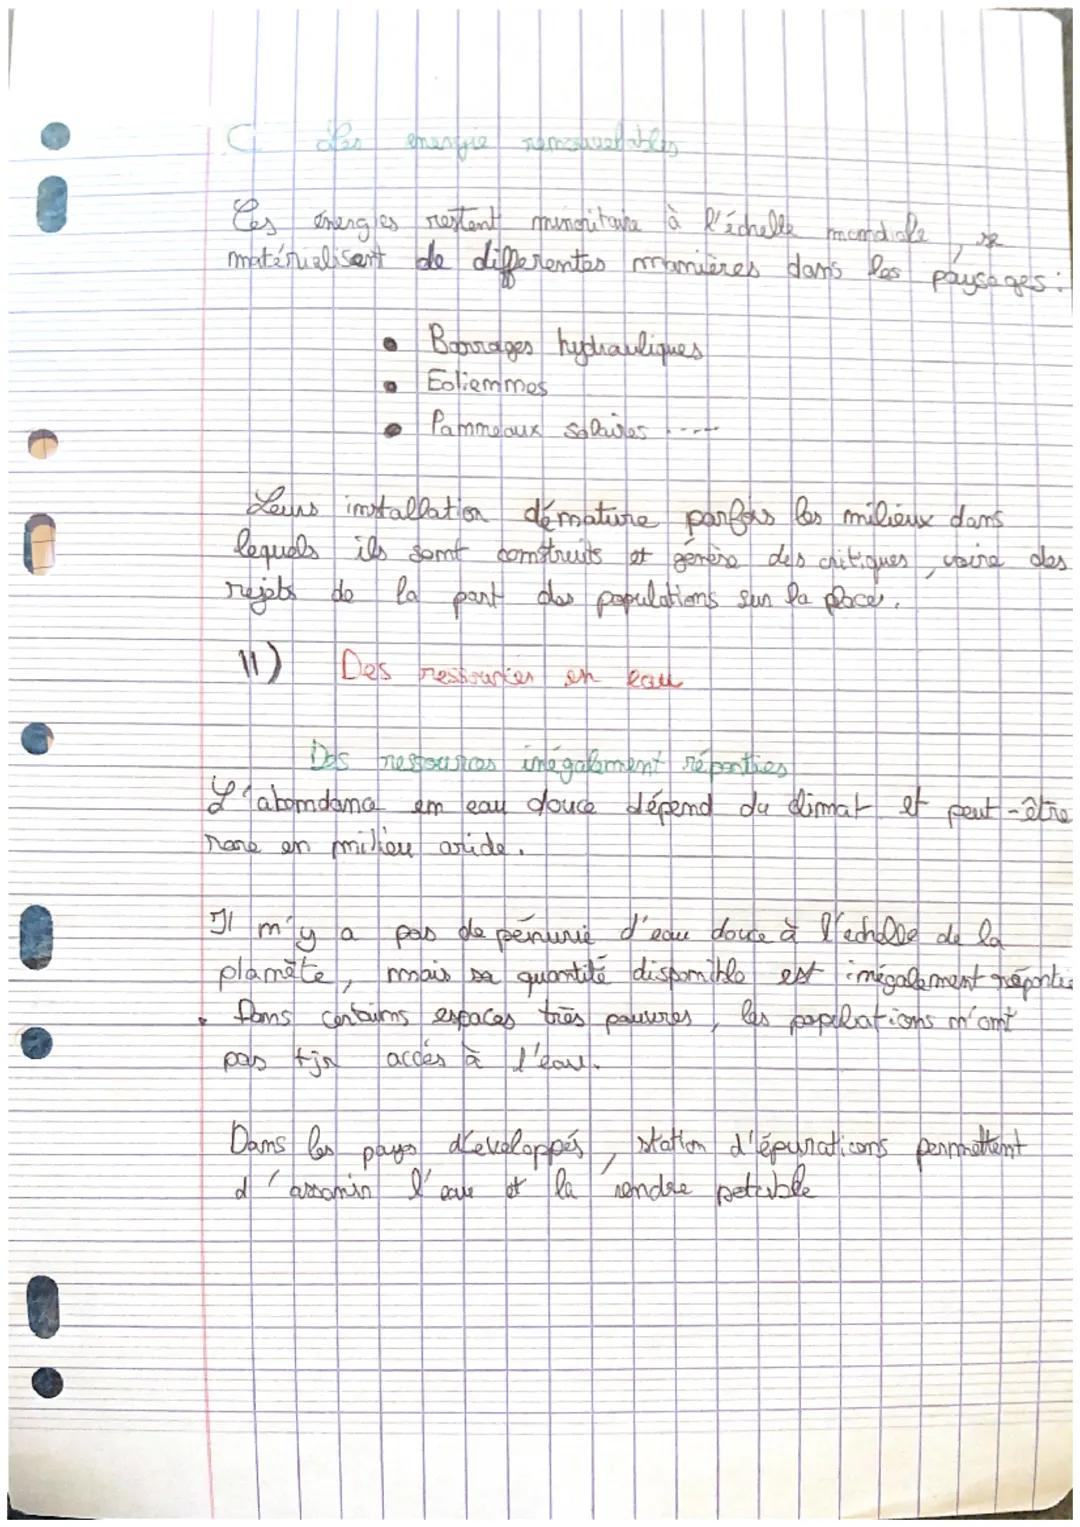 C Les énergie renouvelables
Ces énergies restent minoritaire à l'échelle mondiale, se
matérialisent de differentes manières dans les paysages :
• Barrages hydrauliques
• Eoliennes
• Panneaux solaires ----
Leurs installation dénature parfois les milieux dans
lequels ils sont construits et génère des critiques, voire des
rejets de la part des populations sur la places.
II) Des ressources en eau
Des ressources inégalement réparties
L'abondance en eau douce dépend du climat et peut-être
rare en milieu aride.
Il n'y a pas de pénurie d'eau douce à l'échelle de la
planète, mais sa quantité disponible est inégalement répartie
. Dans certains espaces très pauvres, les populations n'ont
pas tjr accés à l'eau.
Dans les pays développés, station d'épurations permettent
d'assanir l'eau et la rendre potable